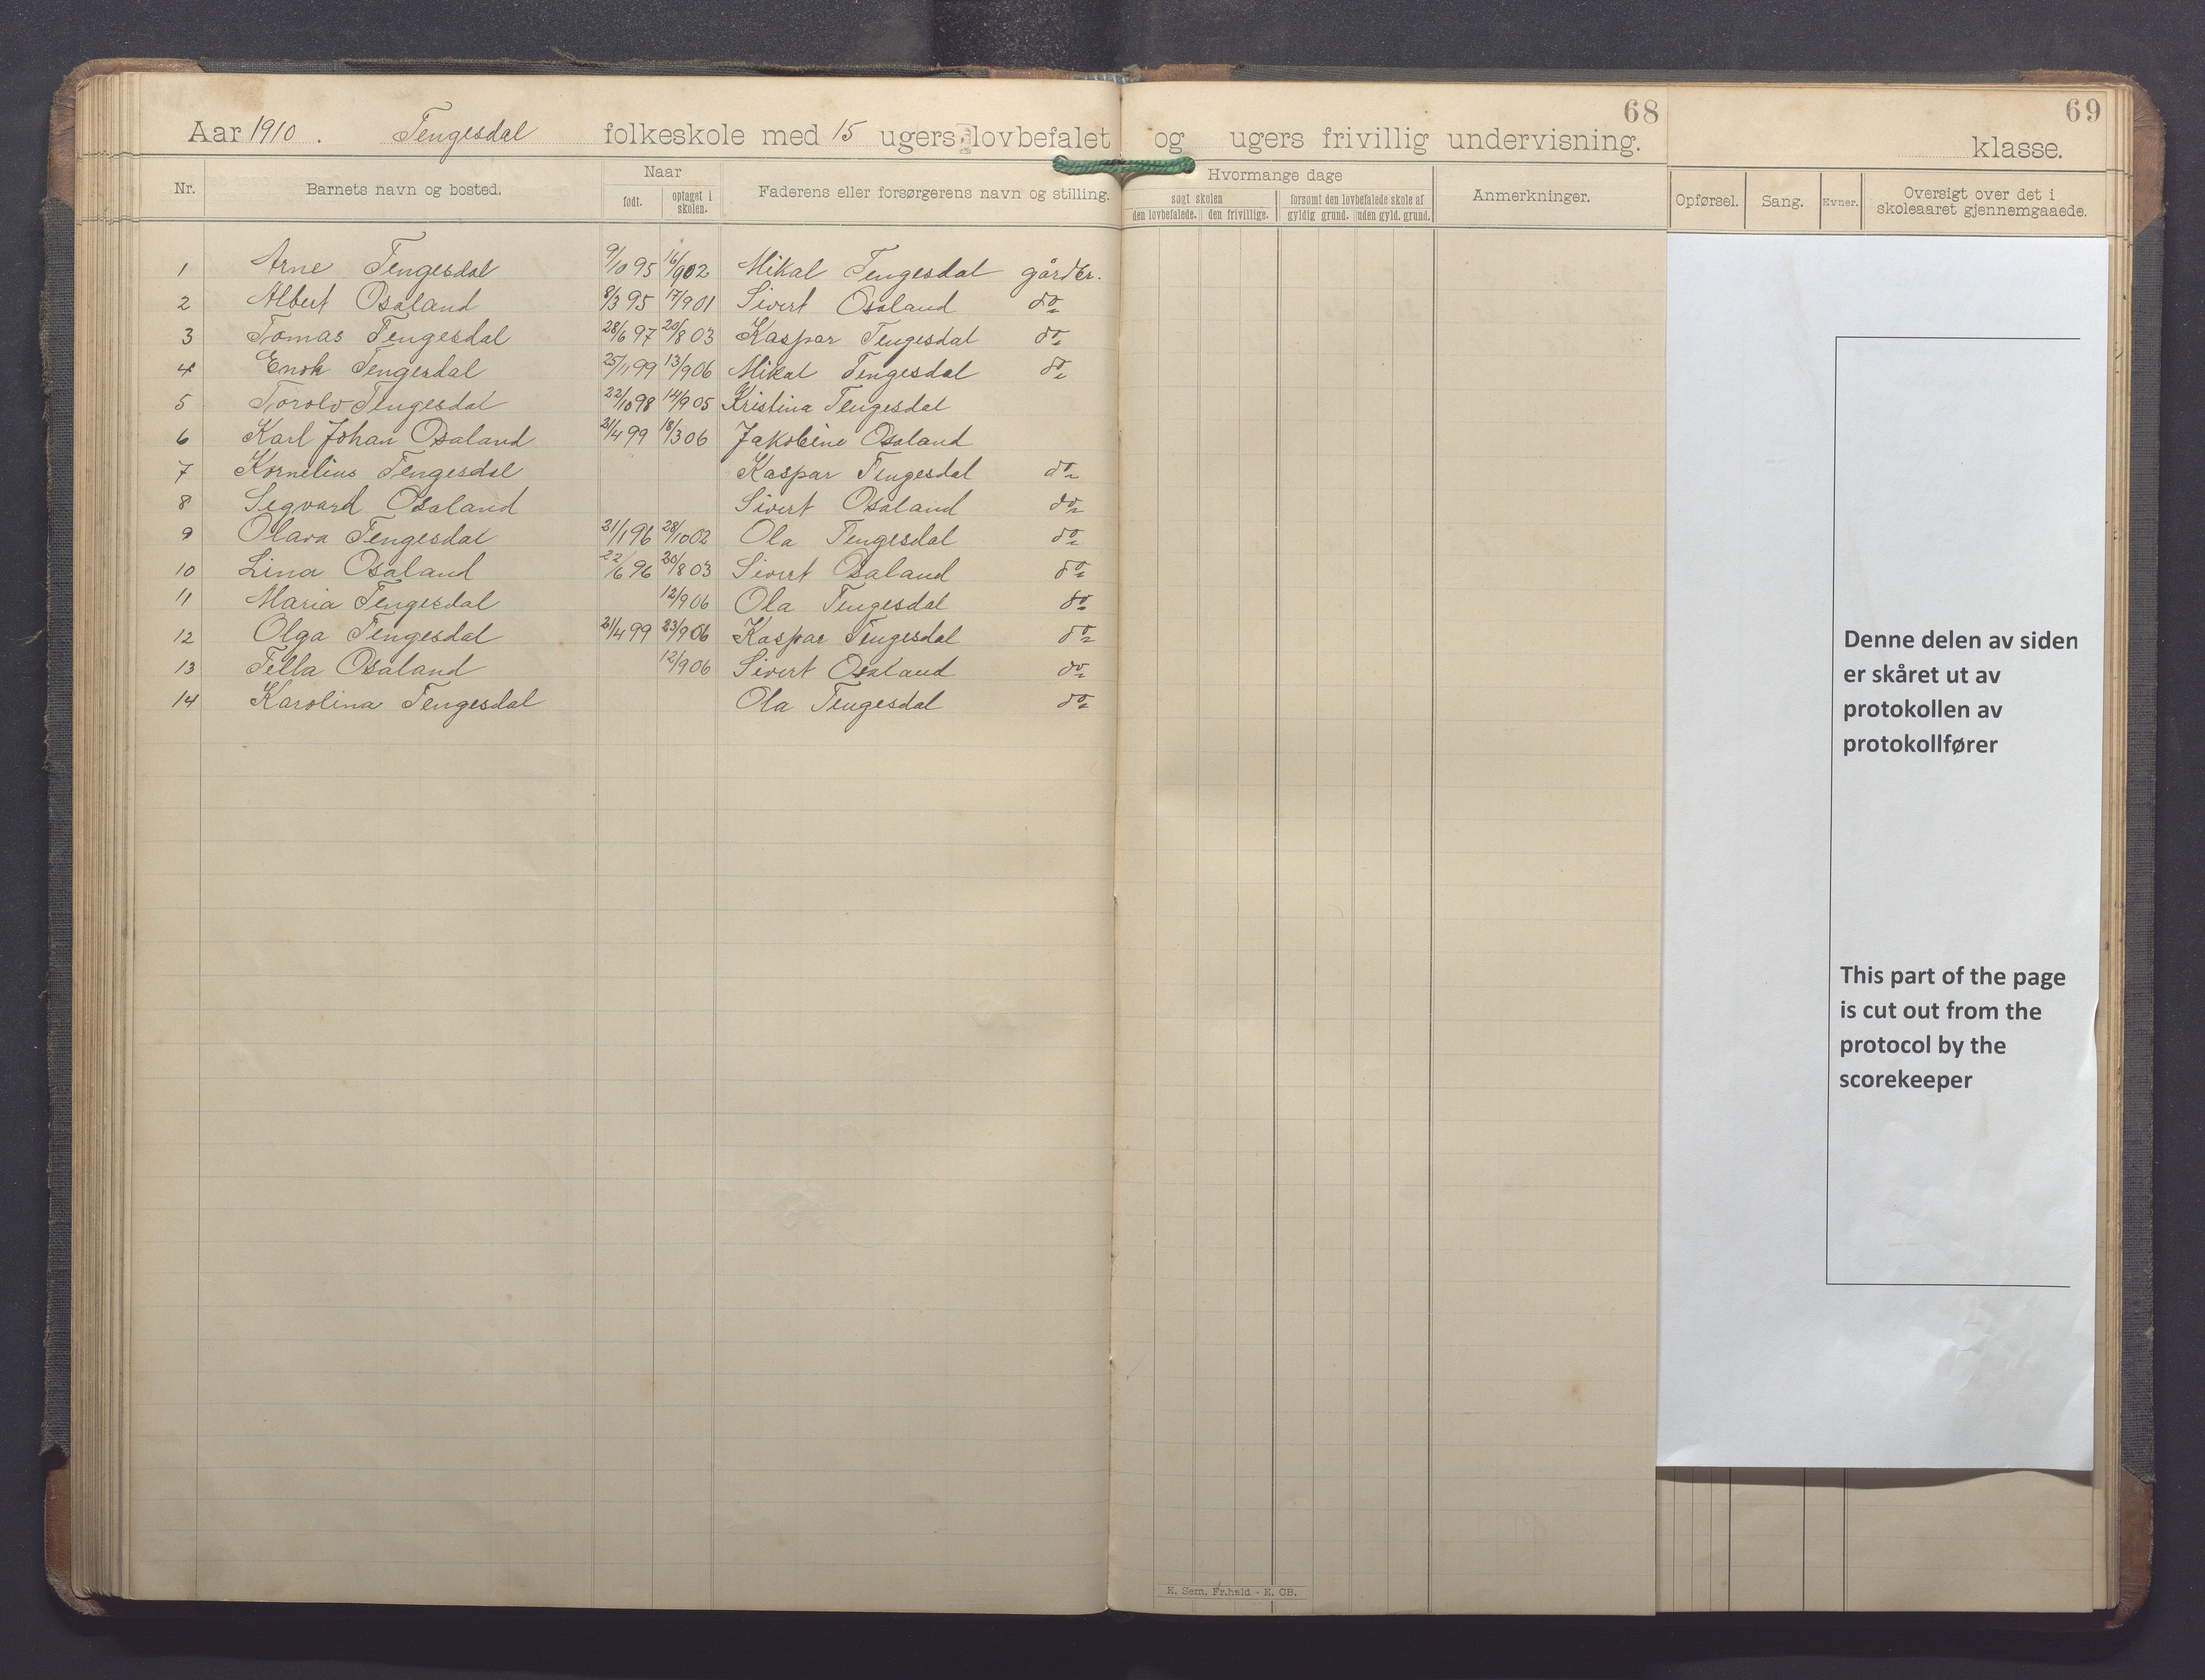 68
69
Aar 1910. Tengesdal folkeskole med 15 ugers lovbefalet og ugers frivillig undervisning.
klasse.
Nr. Barnets navn og bosted. Naar Faderens eller forsørgerens navn og stilling. Hvormange dage Anmerkninger. Opførsel. Sang. Evner. Oversigt over det i skoleaaret gjennemgaaede.
født. optaget i skolen. søgt skolen forsømt den lovbefalede skole af
den lovbefalede. den frivillige. gyldig grund. uden gyld. grund.
1 Arne Tengesdal 9/10 95 16/9 02 Mikal Tengesdal gårdbr.
2 Albert Osaland 8/3 95 17/9 01 Sivert Osaland do
3 Tomas Tengesdal 28/6 97 20/8 03 Kaspar Tengesdal do
4 Enok Tengesdal 25/11 99 13/9 06 Mikal Tengesdal do
5 Torolv Tengesdal 22/10 98 14/9 05 Kristina Tengesdal
6 Karl Johan Osaland 21/4 99 18/3 06 Jakobine Osaland
7 Kornelius Tengesdal Kaspar Tengesdal do
8 Segvard Osaland Sivert Osaland do
9 Olava Tengesdal 21/1 96 28/10 02 Ola Tengesdal do
10 Lina Osaland 22/6 96 20/8 03 Sivert Osaland do
11 Maria Tengesdal 12/9 06 Ola Tengesdal do
12 Olga Tengesdal 21/4 99 23/9 06 Kaspar Tengesdal do
13 Tella Osaland 12/9 06 Sivert Osaland do
14 Karolina Tengesdal Ola Tengesdal do
Denne delen av siden
er skåret ut av
protokollen av
protokollfører
This part of the page
is cut out from the
protocol by the
scorekeeper
E. Sem, Fr.hald - E. CB.